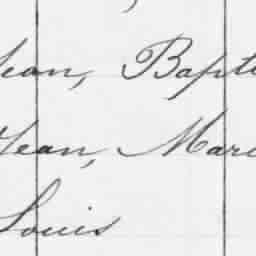 Jean, Bapti
Jean, Marc
Louis